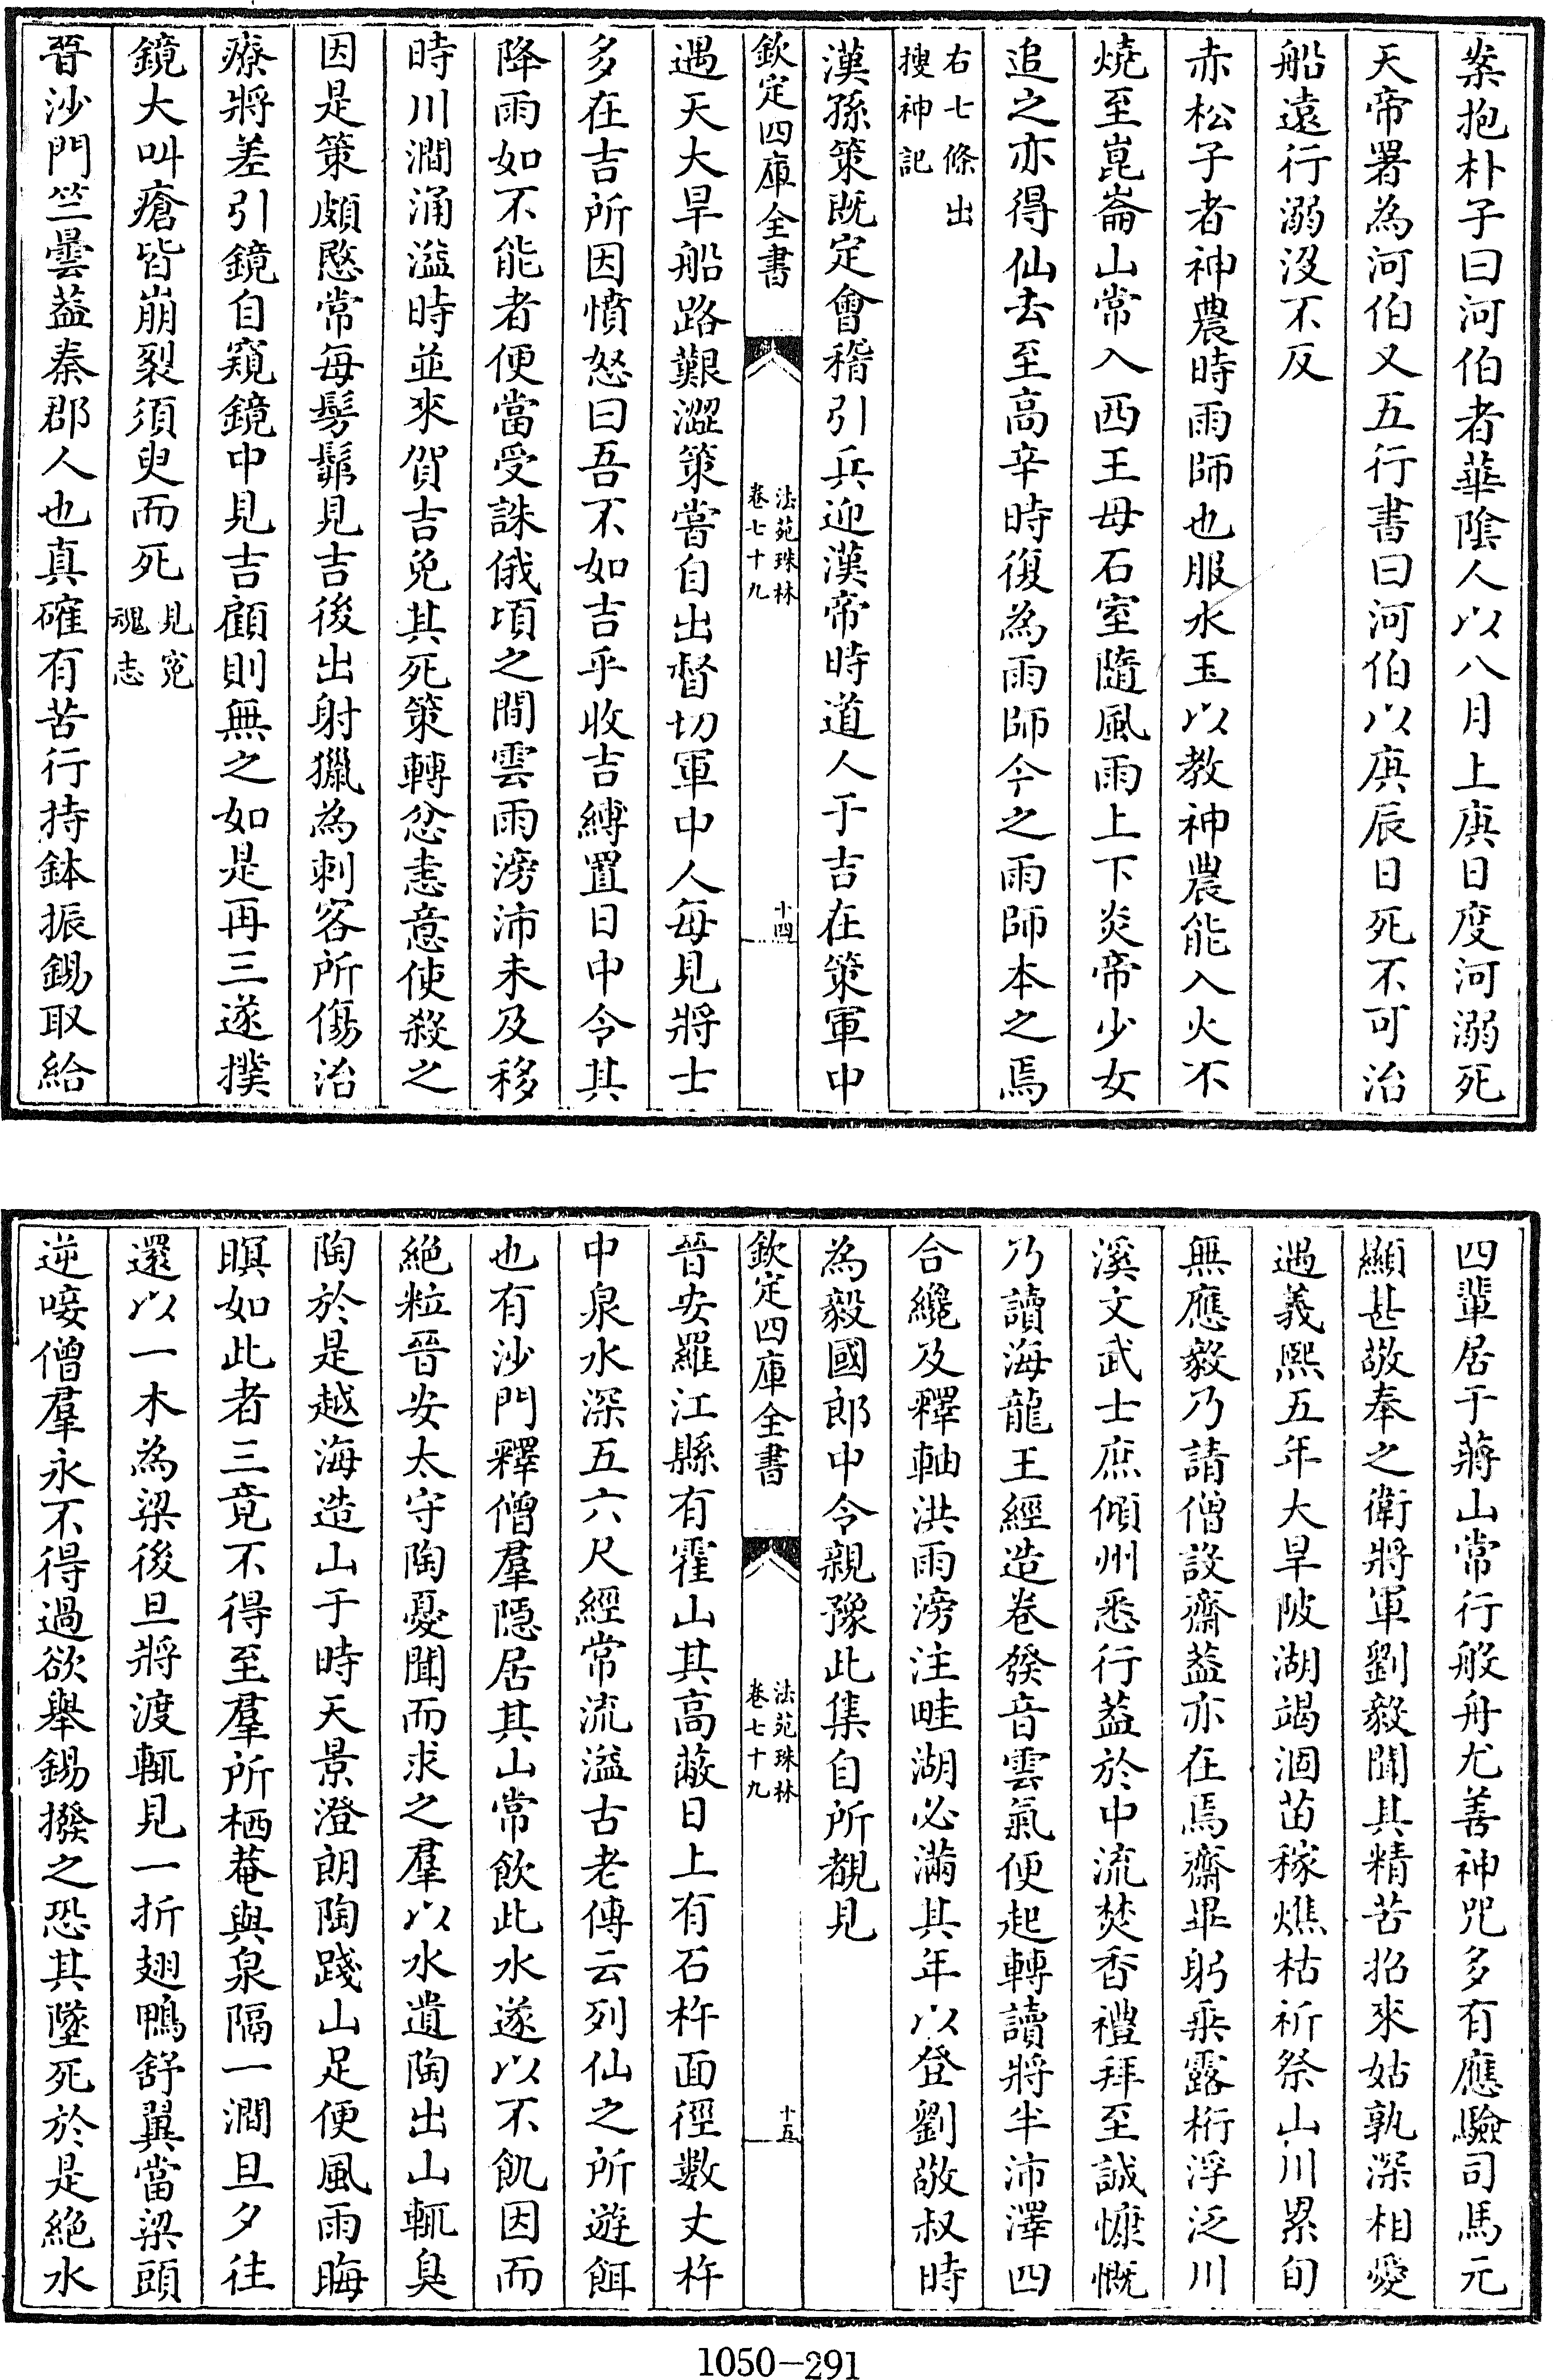 案抱朴子曰河伯者華陰人以八月上庚日度河溺死
天帝署為河伯又五行書曰河伯以庚辰日死不可治
船遠行溺沒不反
赤松子者神農時雨師也服水玉以教神農能入火不
燒至崑崙山常入西王母石室隨風雨上下炎帝少女
追之亦得仙去至高辛時復為雨師今之雨師本之焉
右七條出
搜神記
漢孫策既定會稽引兵迎漢帝時道人于吉在策軍中
欽定四庫全書
法苑珠林
卷七十九
十四
遇天大旱船路艱澀策嘗自出督切軍中人每見將士
多在吉所因憤怒曰吾不如吉乎收吉縛置日中令其
降雨如不能者便當受誅俄頃之間雲雨滂沛未及移
時川澗涌溢時並來賀吉免其死策轉忿恚意使殺之
因是策頗愍常每髣髴見吉後出射獵為刺客所傷治
療將差引鏡自窺鏡中見吉顧則無之如是再三遂撲
鏡大叫瘡皆崩裂須臾而死
見寃
魂志
晉沙門竺曇蓋秦郡人也真確有苦行持鉢振錫取給
四輩居于蔣山常行般舟尤善神咒多有應驗司馬元
顯甚敬奉之衛將軍劉毅聞其精苦招來姑孰深相愛
遇義熙五年大旱陂湖竭涸苗稼燋枯祈祭山川累旬
無應毅乃請僧設齋蓋亦在焉齋畢躬乘露桁浮泛川
溪文武士庶傾州悉行蓋於中流焚香禮拜至誠慷慨
乃讀海龍王經造卷發音雲氣便起轉讀將半沛澤四
合纔及釋軸洪雨滂注畦湖必滿其年以登劉敬叔時
為毅國郎中令親豫此集自所覩見
欽定四庫全書
法苑珠林
卷七十九
十五
晉安羅江縣有霍山其高蔽日上有石杵面徑數丈杵
中泉水深五六尺經常流溢古老傳云列仙之所遊餌
也有沙門釋僧羣隱居其山常飲此水遂以不飢因而
絕粒晉安太守陶憂聞而求之羣以水遺陶出山輒臭
陶於是越海造山于時天景澄朗陶踐山足便風雨晦
暝如此者三竟不得至羣所栖菴與泉隔一澗旦夕往
還以一木為梁後旦將渡輒見一折翅鴨舒翼當梁頭
逆唼僧羣永不得過欲舉錫撥之恐其墜死於是絕水
1050—291